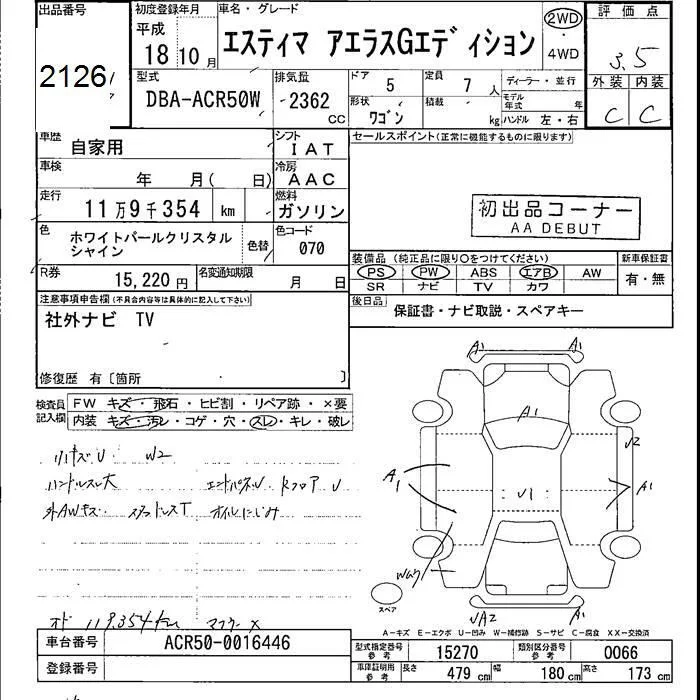 出品番号
2126
初度登録年月
平成
18 10月
車名・グレード
エスティマ アエラスGエディション
2WD
・
4WD
評価点
3.5
外装 内装
C C
型式
DBA-ACR50W
排気量
2362
CC
ドア 5
定員 7 人
ディーラー・並行
形状 ワゴン
積載 kg
モデル年式 年
ハンドル 左・右
車歴
自家用
シフト
IAT
セールスポイント(正常に機能するものに限ります)
車検
年 月( 日)
冷房
AAC
走行
11万9千354 km
燃料
ガソリン
初出品コーナー
AA DEBUT
色
ホワイトパールクリスタル
シャイン
色替
色コード
070
装備品 (純正品に限り○をつけてください)
新車保証書
PS PW ABS エアB AW
有・無
SR ナビ TV カワ
R券
15,220円
名変通知期限
月 日
後日品
保証書・ナビ取説・スペアキー
注意事項申告欄(不具合内容等は具体的に記入して下さい)
社外ナビ TV
修復歴 有〔箇所 〕
検査員
記入欄
FW キズ・飛石・ヒビ割・リペア跡・×要
内装 キズ・汚レ・コゲ・穴・スレ・キレ・破レ
小キズU W2
ハンドルスレ大 エンドパネルU RフロアU
外AWキズ ステップドレスT オイルにじみ
オド 119,354km マフラーX
A1 A1
A1
U2
A1
U1
A1
スペア
UA2 A1
A-キズ E-エクボ U-凹み W-補修跡 S-サビ C-腐食 XX-交換済
車台番号
ACR50-0016446
型式指定番号
参考
15270
類別区分番号
参考
0066
登録番号
車庫証明用
参考
長さ 479 cm
幅 180 cm
高さ 173 cm